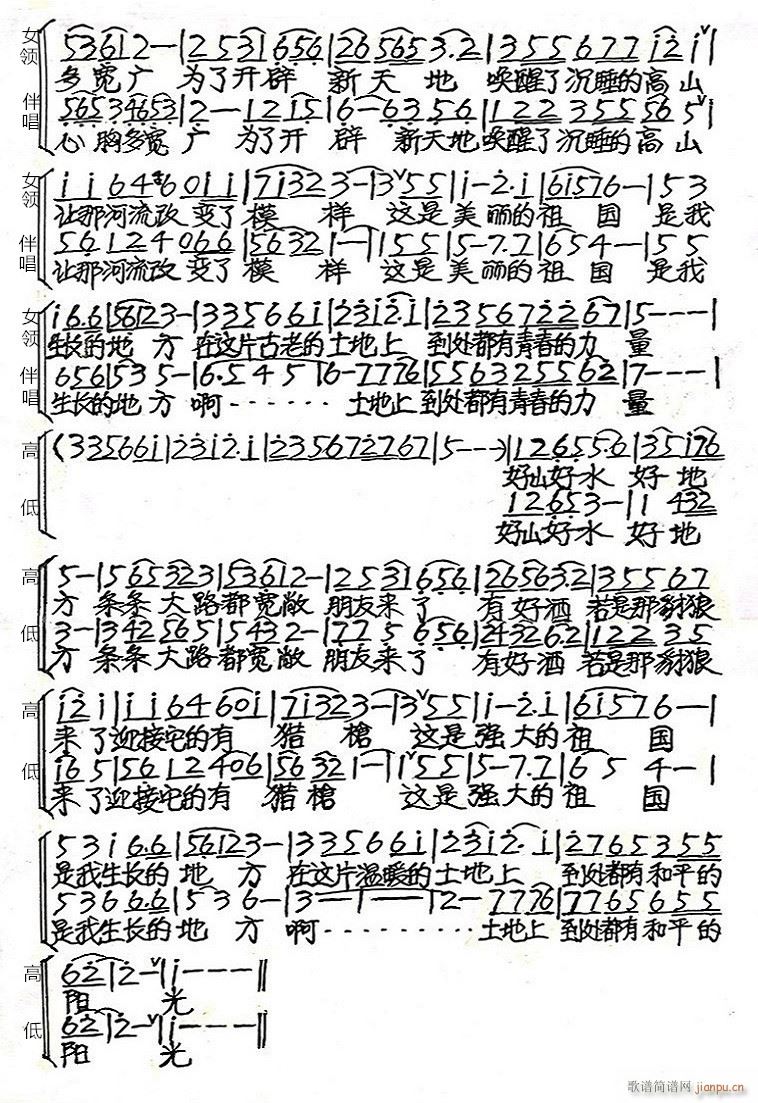 女领 5 3 6 1 2 — | 2 5 3 1 6 5 6 | 2 6 5 6 5 3·2 | 3 5 5 6 7 7 i 2 i |
多宽广 为了开辟 新天地 唤醒了沉睡的高山
伴唱 5 6 5 3 4 6 5 3 | 2 — 1 2 1 5 | 6 — 6 3 5 6 | 1 2 2 3 5 5 5 6 5 |
心胸多宽广 为了开辟 新天地唤醒了沉睡的高山
女领 i i 6 4 6 0 i i | 7 i 3 2 3 — | 3 5 5 | i — 2·i | 6 i 5 7 6 — | 5 3
让那河流改变了模样 这是美丽的祖国 是我
伴唱 5 6 1 2 4 0 6 6 | 5 6 3 2 1 — | 1 5 5 | 5 — 7·7 | 6 5 4 — | 5 5
让那河流改变了模样 这是美丽的祖国 是我
女领 i 6·6 | 5 6 1 2 3 — | 3 3 5 6 6 i | 2 3 i 2·i | 2 3 5 6 7 2 2 6 7 | 5 — — — |
生长的地方 在这片古老的土地上 到处都有青春的力量
伴唱 6 5 6 | 5 3 5 — | 6·5 4 5 | 6 — 7 7 7 6 | 5 5 6 3 2 5 5 6 2 | 7 — — — |
生长的地方 啊······ 土地上到处都有青春的力量
高 (3 3 5 6 6 i | 2 3 i 2·i | 2 3 5 6 7 2 7 6 7 | 5 — — —) | 1 2 6 5 5·6 | 3 5 i 7 6
好山好水 好地
低 1 2 6 5 3 — | 1 4 3 2
好山好水 好地
高 5 — | 5 6 5 3 2 3 | 5 3 6 1 2 — | 2 5 3 1 6 5 6 | 2 6 5 6 3·2 | 3 5 5 6 7
方 条条大路都宽敞 朋友来了 有好酒 若是那豺狼
低 3 — | 3 4 2 5 6 5 | 5 4 3 2 — | 7 7 5 6 5 6 | 2 4 3 2 6 2 | 1 2 2 3 5
方 条条大路都宽敞 朋友来了 有好酒 若是那豺狼
高 i 2 i | i i 6 4 6 0 i | 7 i 3 2 3 — | 3 5 5 | i — 2·i | 6 i 5 7 6 — |
来了迎接它的有 猎枪 这是强大的祖国
低 i 6 5 | 5 6 1 2 4 0 6 | 5 6 3 2 1 — | 1 5 5 | 5 — 7·7 | 6 5 4 — |
来了迎接它的有 猎枪 这是强大的祖国
5 3 i 6·6 | 5 6 1 2 3 — | 3 3 5 6 6 i | 2 3 i 2·i | 2 7 6 5 3 5 5
是我生长的地方 在这片温暖的土地上 到处都有和平的
5 3 6 6·6 | 5 3 6 — | 3 — — | — — | 2 — 7 7 7 6 | 7 7 6 5 6 5 5
是我生长的地方 啊·········土地上 到处都有和平的
高 6 2 | 2 — | i — — — ‖
阳 光
低 6 2 | 2 — | i — — — ‖
阳 光
歌谱简谱网 jianpu.cn